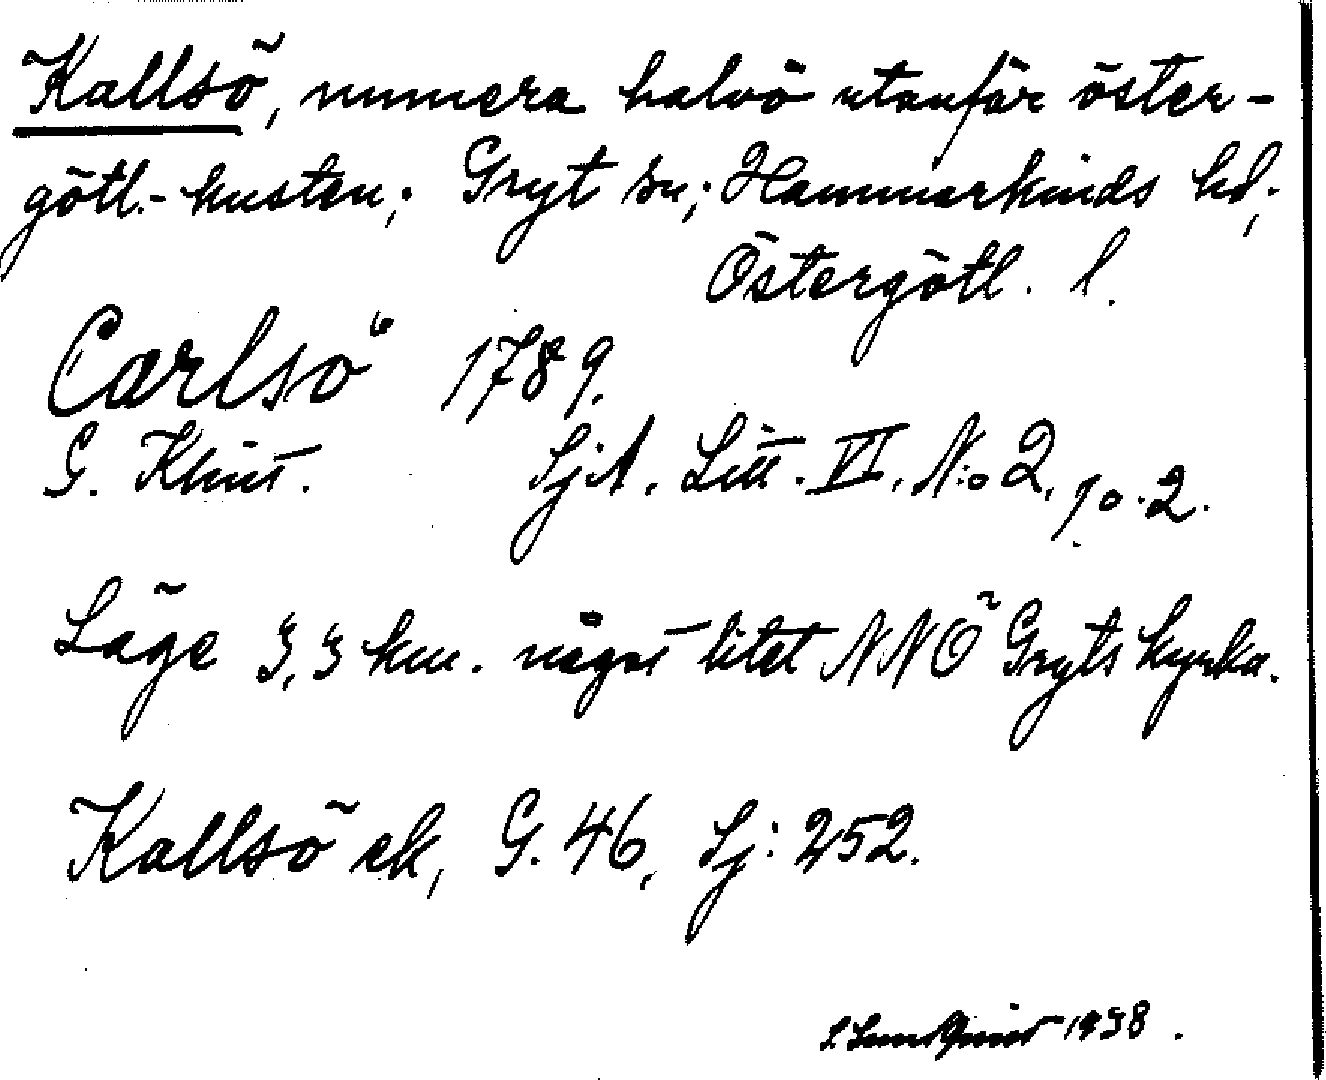 Kallsö, numera halvö utanför öster-
götl.-kusten; Gryt sn; Hammarkinds hd;
Östergötl. l.
Carlsö 1789.
G. Klint. SjA. Litt. VI. N:o 2, 
Läge 3,3 km. något litet NNÖ Gryts kyrka.
Kallsö ek, G. 46, Sj: 252.
1938.